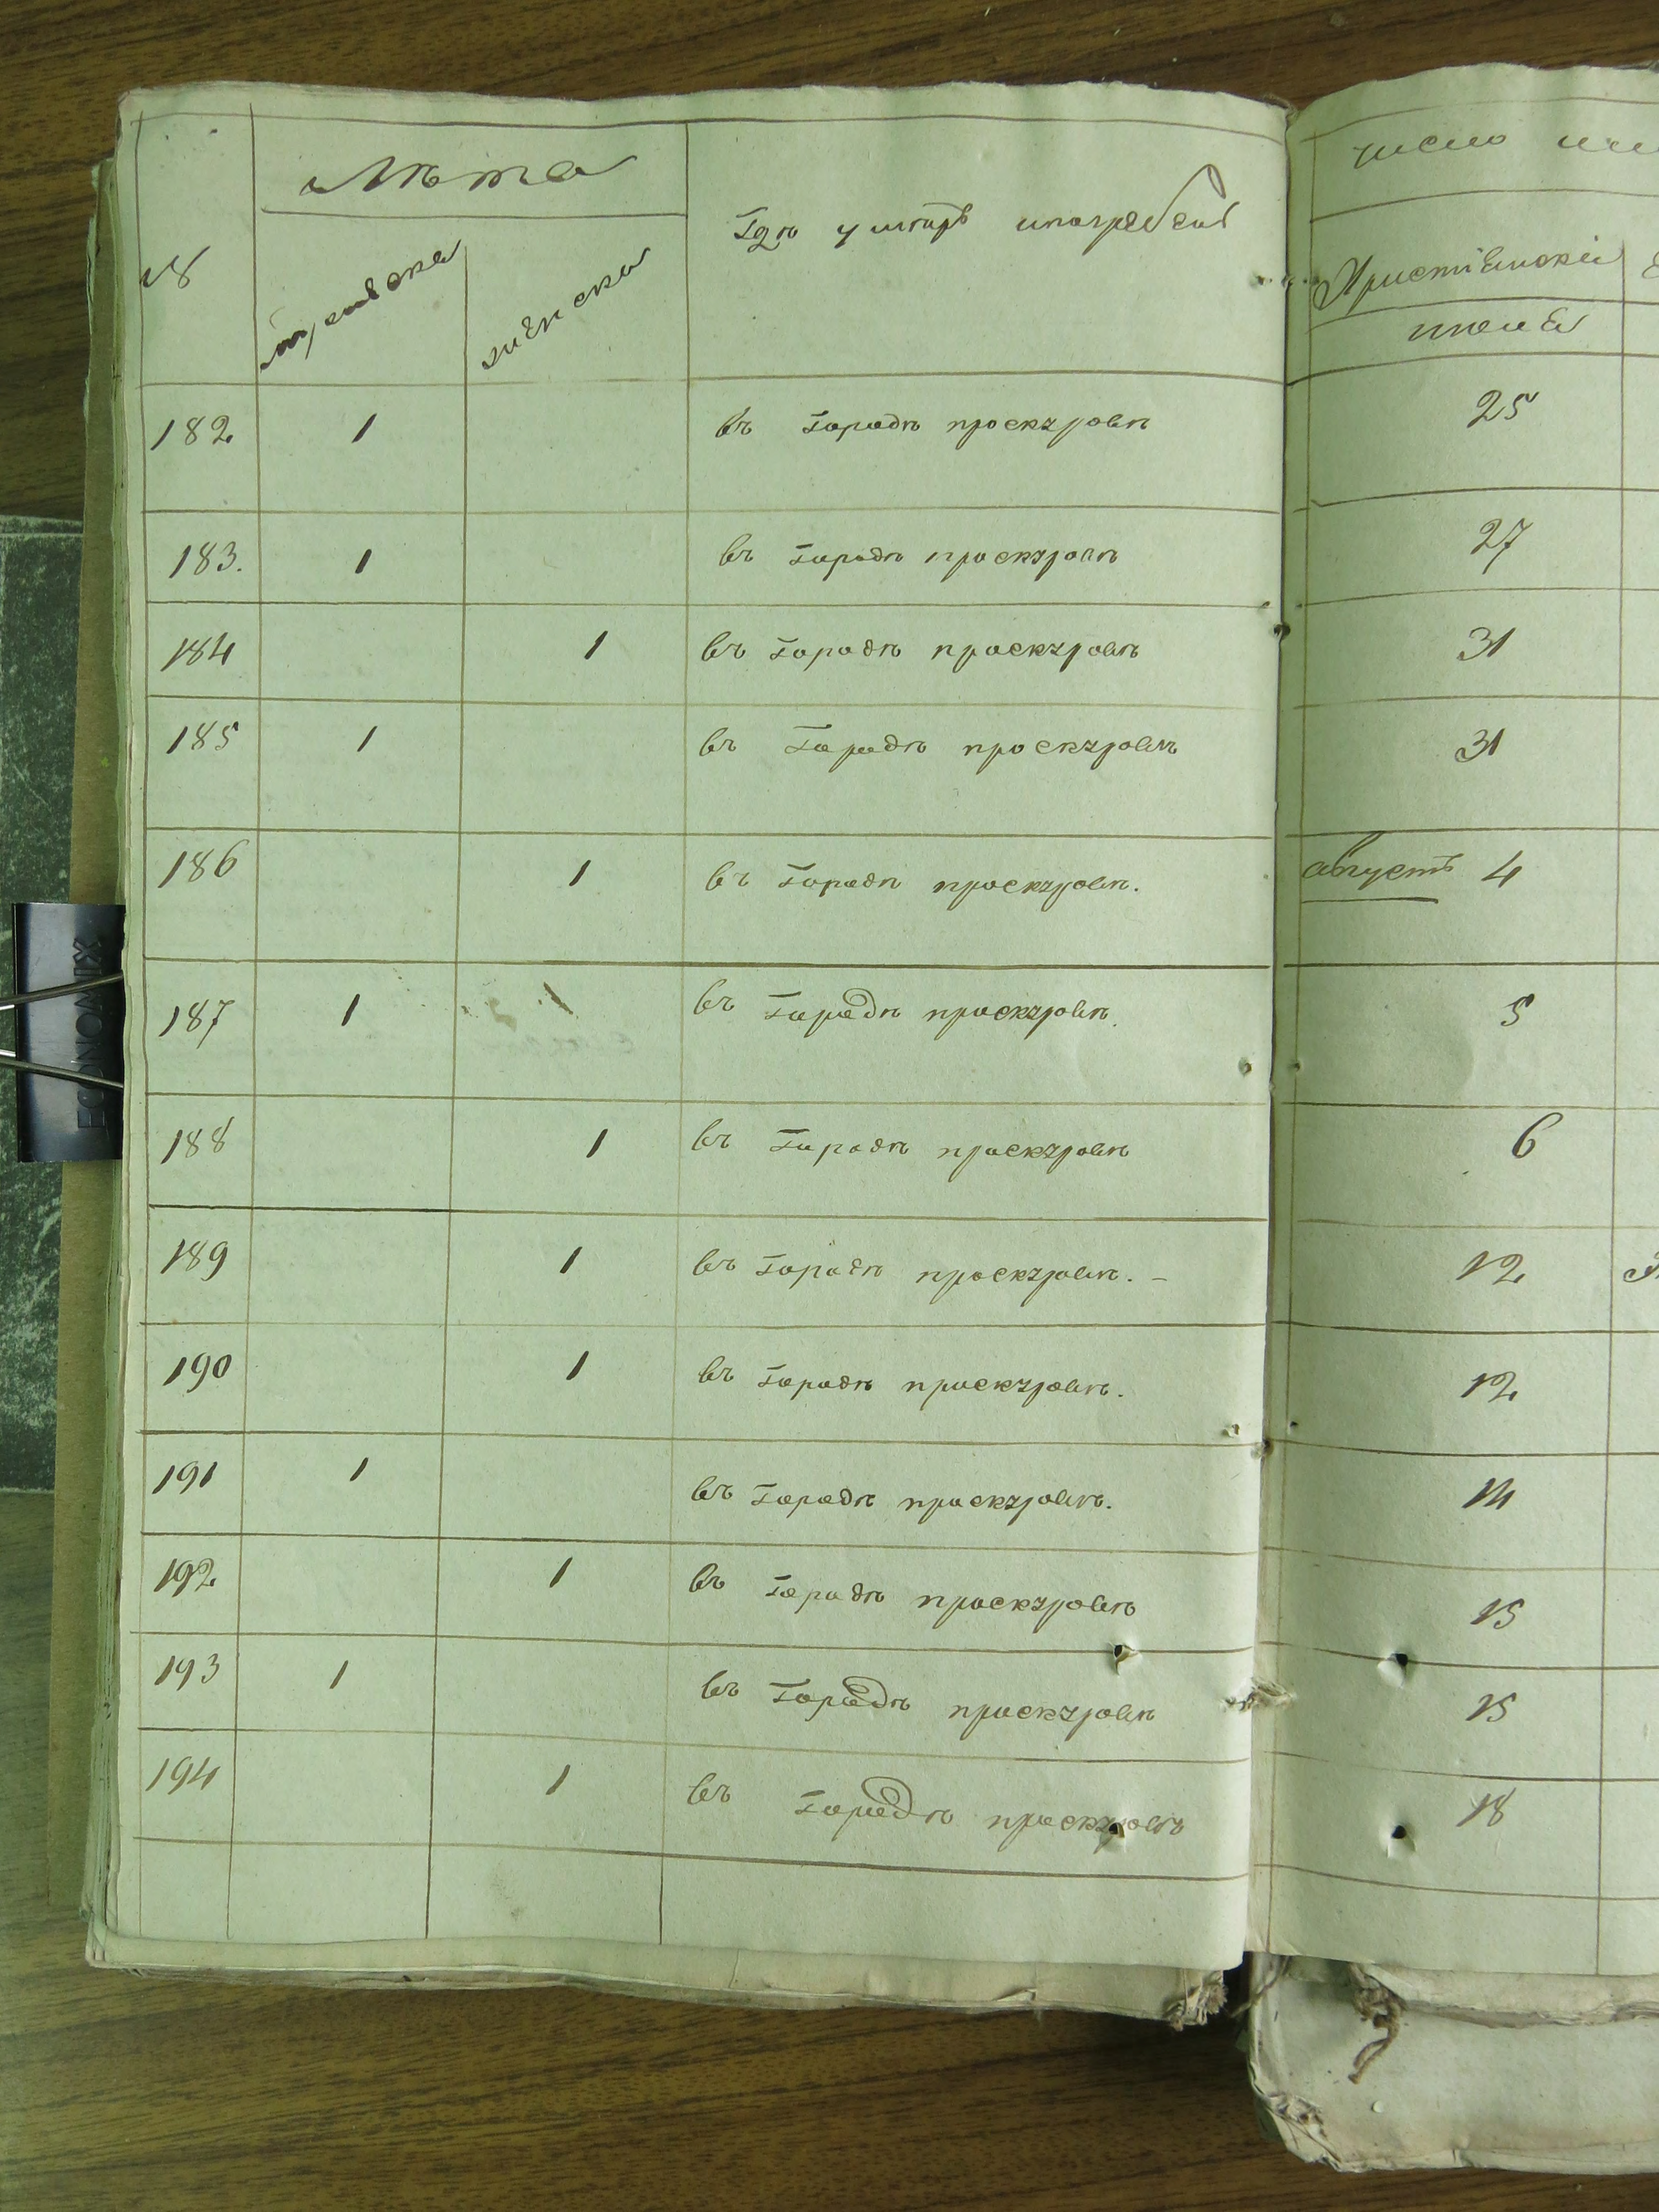 Лѣта
№ мужеска женска Гдѣ умеръ и погребенъ
182 1 въ Городѣ проскуровѣ
183. 1 въ Городѣ проскуровѣ
184 1 въ Городѣ проскуровѣ
185 1 въ Городѣ проскуровѣ
186 1 въ Городѣ проскуровѣ.
187 1 1 въ Городѣ проскуровѣ
188 1 въ Городѣ проскуровѣ
189 1 въ Городѣ проскуровѣ. –
190 1 въ Городѣ проскуровѣ.
191 1 въ Городѣ проскуровѣ.
192 1 въ Городѣ проскуровѣ
193 1 въ Городѣ проскуровѣ
194 1 въ Городѣ проскуровѣ
число
Христіанскій
іюля
25
27
31
31
августъ 4
5
6
12
12
14
15
15
18
ECONOMIX